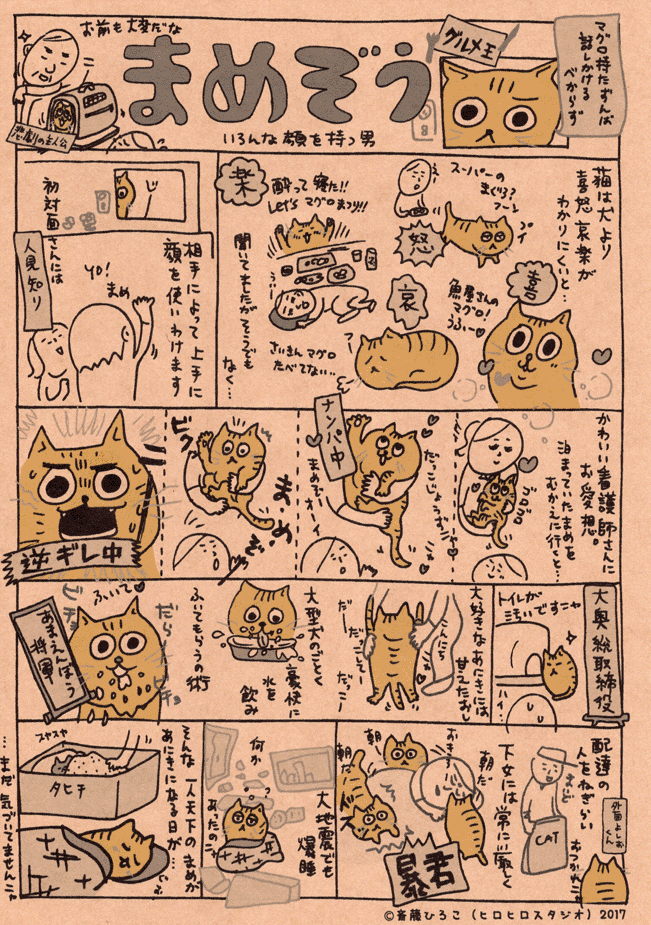 お前も大変だな
悲劇の主人公
まめぞう
いろんな顔を持つ男
グルメ王
マグロ持たずんば
話しかける
べからず
猫は犬より
喜怒哀楽が
わかりにくいと…
喜
魚屋さんの
マグロ!
うふぃ〜
怒
スーパーの
まぐろ?
フーン
プイ
哀
さいきんマグロ
たべてない…
楽
酔って寝た!!
Let's マグロまつり!!
聞いてましたがそうでも
なく…
相手によって上手に
顔を使いわけます
初対面
さんには
人見知り
YO!
まめ
かわいい看護師さんに
お愛想。
泊まっていたまめを
むかえに行くと…
ゴロゴロ
だっこじょうずニャ
ナンパ中
まめぞーオーイ
ビクッ
ま・め・ぞ・う
逆ギレ中
大奥総取締役
トイレが
汚いですニャ
ハイ…
大好きなあにきには
甘えたおし
こんにち
だー
だっこー
だっこー
大型犬のごとく
豪快に
水を
飲み
ふいてもらうの術
ふいて
だらー
ビチョ
ビチョ
あまえんぼう
将軍
配達の
人をねぎらい
まいど
おつかれニャ
外面よしお
くん
CAT
下女には常に厳しく
朝だ
おきろー
朝
朝だ
暴君
大地震でも
爆睡
何か
あったの?
そんな一人天下のまめが
あにきになる日が…
スヤスヤ
タヒチ
…まだ気づいてませんニャ
©斎藤ひろこ(ヒロヒロスタジオ)2017